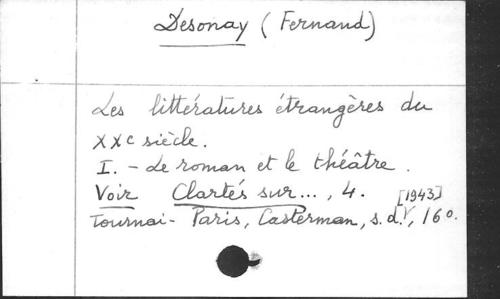 Desonay (Fernand)
Les littératures étrangères du
XXe siècle.
I. - Le roman et le théâtre.
Voir Clartés sur..., 4.
[1943]
Tournai - Paris, Casterman, s.d., 16°.